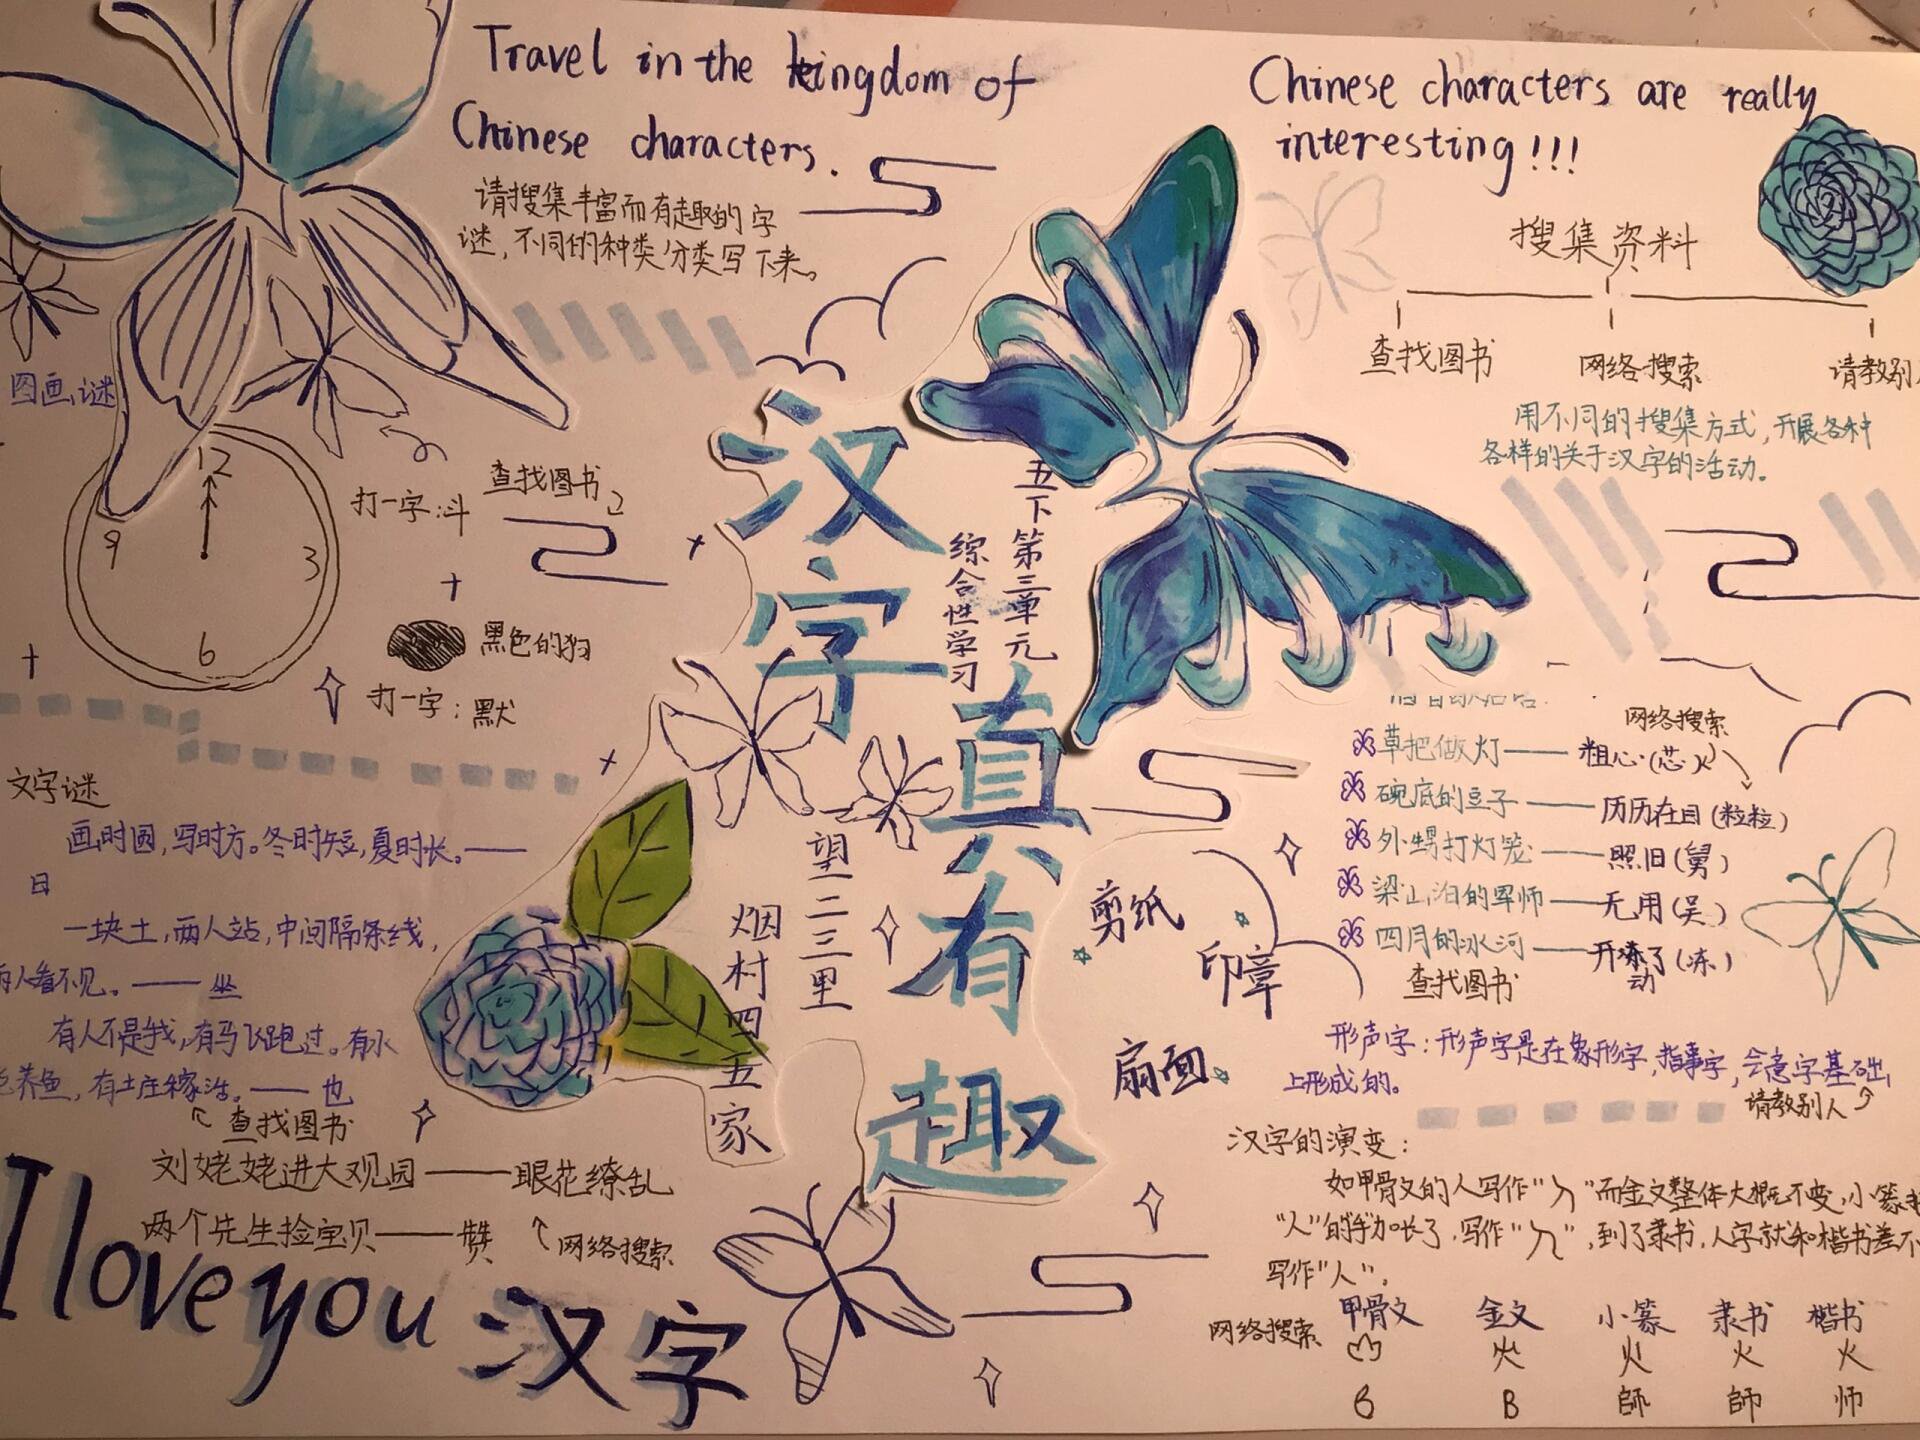 Travel in the kingdom of
Chinese characters.
请搜集丰富而有走趣的字
谜,不同的种类分类写下来。
Chinese characters are really
interesting!!!
搜集资料
查找图书
网络搜索
请教别
用不同的搜集方式,开展各种
各样的关于汉字的活动。
图画谜
12
3
6
9
打一字:斗
查找图书
黑色的狗
打一字:默
汉字真有趣
五下第三单元
综合性学习
文字谜
画时圆,写时方。冬时短,夏时长。——
日
一块土,两人站,中间隔条线,
人看不见。—— 坐
有人不是我,有马飞跑过。有水
养鱼,有土庄稼活。—— 也
查找图书
刘姥姥进大观园——眼花缭乱
两个先生捡宝贝——赞
网络搜索
I love you 汉字
望二三里
烟村四五家
剪纸
印章
扇面
网络搜索
草把做灯——粗心(芯)
碗底的豆子——历历在目(粒粒)
外甥打灯笼——照旧(舅)
梁山泊的军师——无用(吴)
四月的冰河——开动了(冻)
查找图书
形声字:形声字是在象形字,指事字,会意字基础
上形成的。
请教别人
汉字的演变:
如甲骨文的人写作“ ”而金文整体大概不变,小篆
“人”的手加长了,写作“ ”,到了隶书,人字就和楷书差不
写作“人”.
网络搜索
甲骨文 金文 小篆 隶书 楷书
火 火 火 火
師 師 师